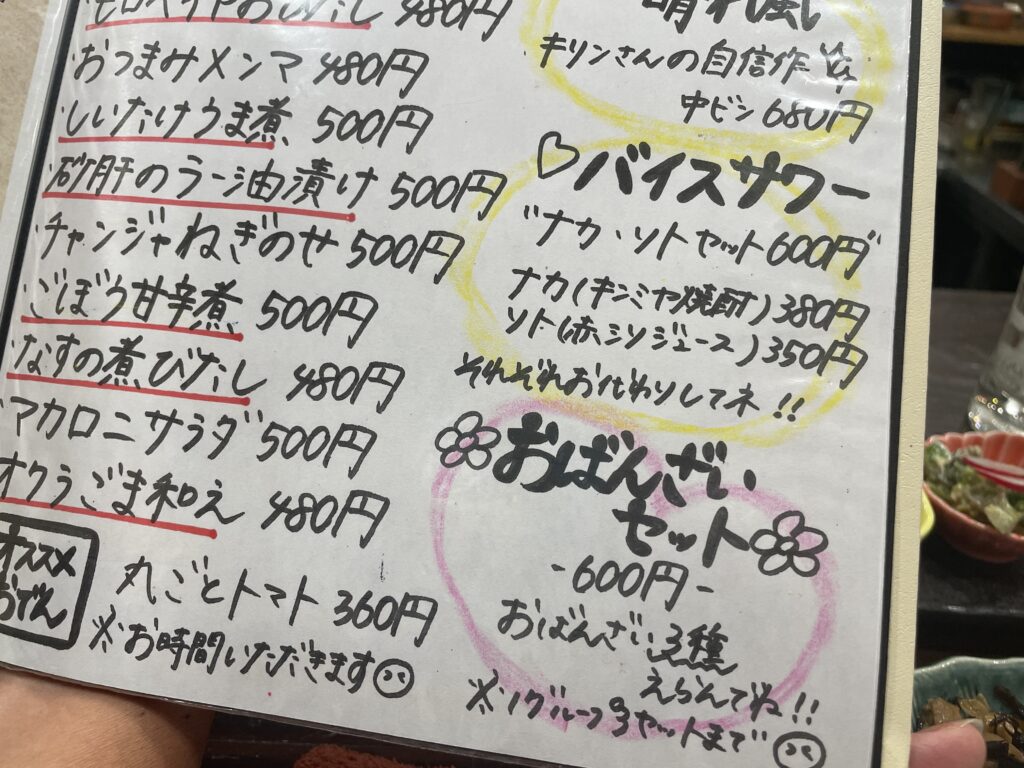 モロヘイヤおひたし 480円
おつまみメンマ 480円
しいたけうま煮 500円
砂肝のラー油漬け 500円
チャンジャねぎのせ 500円
ごぼう甘辛煮 500円
なすの煮びたし 480円
マカロニサラダ 500円
オクラごま和え 480円
オススメ
おでん
丸ごとトマト 360円
※お時間いただきます
晴れ風
キリンさんの自信作
中ビン 680円
♡バイスサワー
"ナカ・ソトセット600円"
ナカ(キンミヤ焼酎)380円
ソト(赤シソジュース)350円
それぞれおかわりしてネ!!
おばんざい
セット
-600円-
おばんざい3種
えらんでね!!
※1グループ3セットまで